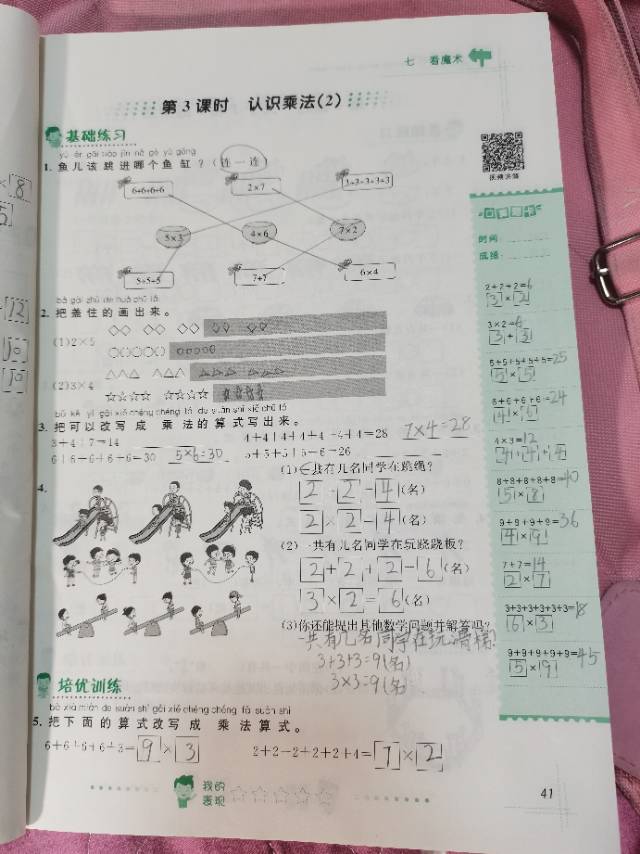 七 看魔术
第 3 课时 认识乘法(2)
基础练习
yú ér gāi tiào jìn nǎ gè yú gāng
1. 鱼儿该跳进哪个鱼缸？(连一连)
6+6+6+6
2×7
3+3+3+3+3
5×3
4×6
7×2
5+5+5
7+7
6×4
bǎ gài zhù de huà chū lái
2. 把盖住的画出来。
(1)2×5
(2)3×4
bǎ kě yǐ gǎi xiě chéng chéng fǎ de suàn shì xiě chū lái
3. 把可以改写成乘法的算式写出来。
3+4+7=14
4+4+4+4+4+4+4=28 7×4=28
6+6+6+6+6=30 5×6=30
5+5+5+5+6=26
4.
(1)一共有几名同学在跳绳?
2+2=4(名)
2×2=4(名)
(2)一共有几名同学在玩跷跷板?
2+2+2=6(名)
3×2=6(名)
(3)你还能提出其他数学问题并解答吗?
一共有几名同学在玩滑梯?
3+3+3=9(名)
3×3=9(名)
培优训练
bǎ xià miàn de suàn shì gǎi xiě chéng chéng fǎ suàn shì
5. 把下面的算式改写成乘法算式。
6+6+6+6+3=9×3
2+2+2+2+2+4=7×2
我的
表现
41
时间:
成绩:
2+2+2=6
3×2=6
3+3
5+5+5+5+5=25
5×5
6+6+6+6=24
4×6
4×3=12
4+4+4
8+8+8+8+8=40
5×8
9+9+9+9=36
4×9
7+7=14
2×7
3+3+3+3+3+3=18
6×3
9+9+9+9+9=45
5×9